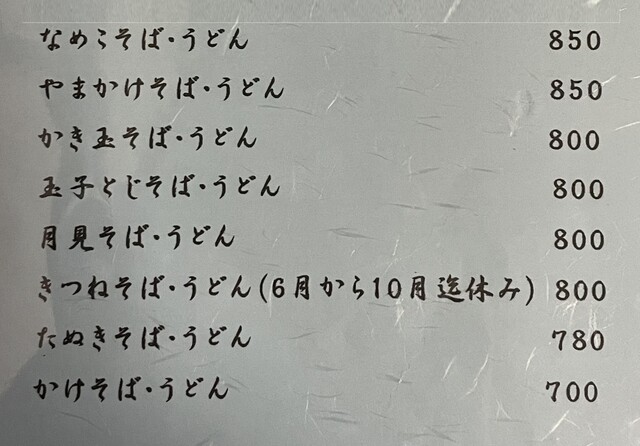 なめこそば・うどん 850
やまかけそば・うどん 850
かき玉そば・うどん 800
玉子とじそば・うどん 800
月見そば・うどん 800
きつねそば・うどん(6月から10月迄休み) 800
たぬきそば・うどん 780
かけそば・うどん 700